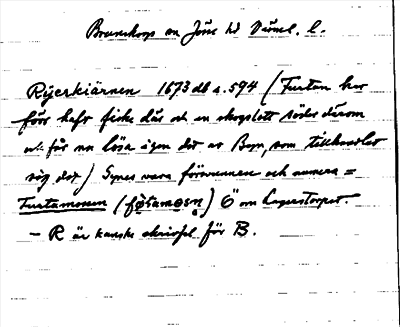 Brunskogs sn Jösse hd Värml. l.
Ryerkiärnen 1673 db s. 594 (Furtan har
förr haft fiske där och en skogslott söder därom
får nu lösa igen det av Byn, som tillhandlat
sig det) Synes vara försvunnen och numera =
Furtamosen (fọ̈tamosn) Ö om Lagerstorpet.
– R är kanske skrivfel för B.